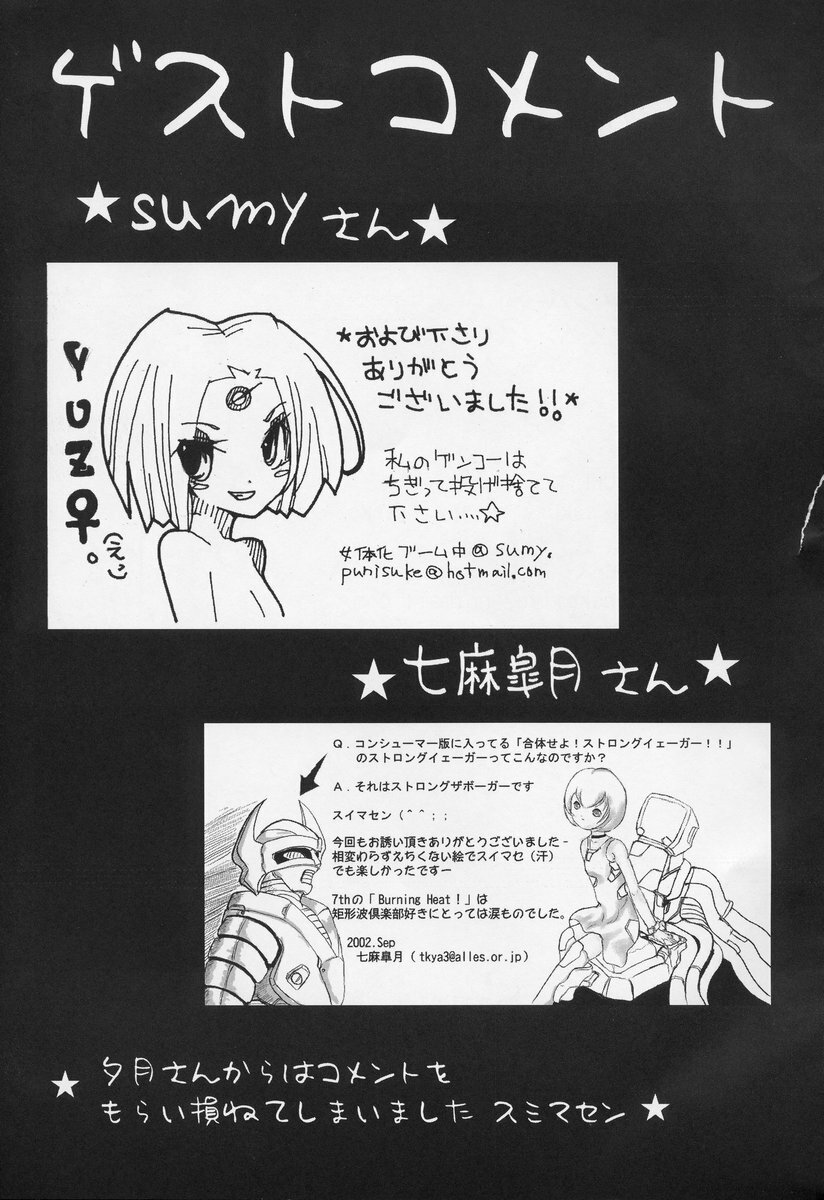 ゲストコメント
★sumyさん★
YUZ♀。
(えっ
*および下さり
ありがとう
ございました!!*
私のゲンコーは
ちぎって投げ捨てて
下さい....☆
女体化ブーム中@sumy.
punisuke@hotmail.com
★七麻皐月さん★
Q.コンシューマー版に入ってる「合体せよ!ストロングイェーガー!!」
のストロングイェーガーってこんなのですか?
A.それはストロングザボーガーです
スイマセン(^^;;
今回もお誘い頂きありがとりございました-
相変わらずえちくない絵でスイマセ(汗)
でも楽しかったですー
7thの「Burning Heat!」は
矩形波倶楽部好きにとっては涙ものでした。
2002.Sep
七麻皐月(tkya3@alles.or.jp)
★夕月さんからはコメントを
もらい損ねてしまいました スミマセン★